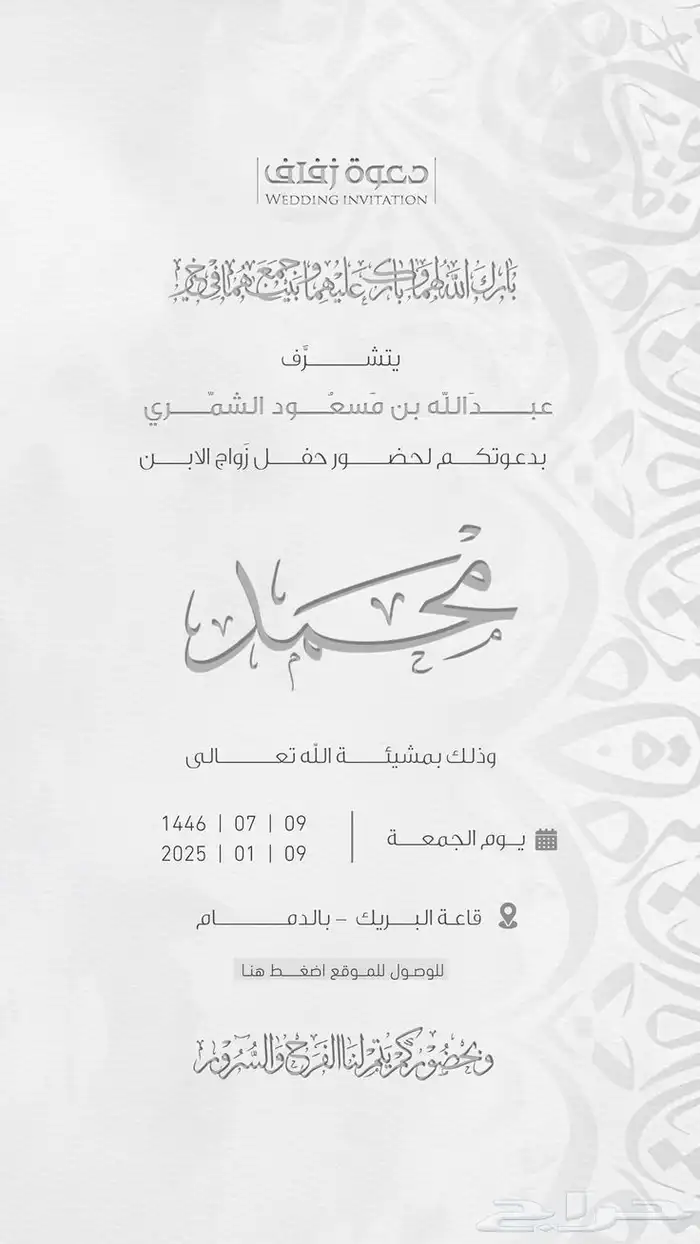 دعوة زفاف
WEDDING INVITATION
بَارَكَ اللَّه لهُمَا وَبَارَكَ عَلَيْهِمَا وَجَمَعَ بَيْنَهُمَا فِي خَيْر
يتشرَّف
عبدَاللّه بن مَسعُود الشمّري
بدعوتكم لحضور حفل زَواج الابن
محمد
وذلك بمشيئة اللّه تعالى
يوم الجمعة
1446 | 07 | 09
2025 | 01 | 09
قاعة البريك – بالدمام
للوصول للموقع اضغط هنا
وَبحُضُوْرِكُمْ يَتِمّ لَنَا الفَرَحُ وَالسُّرُوْر
حراج